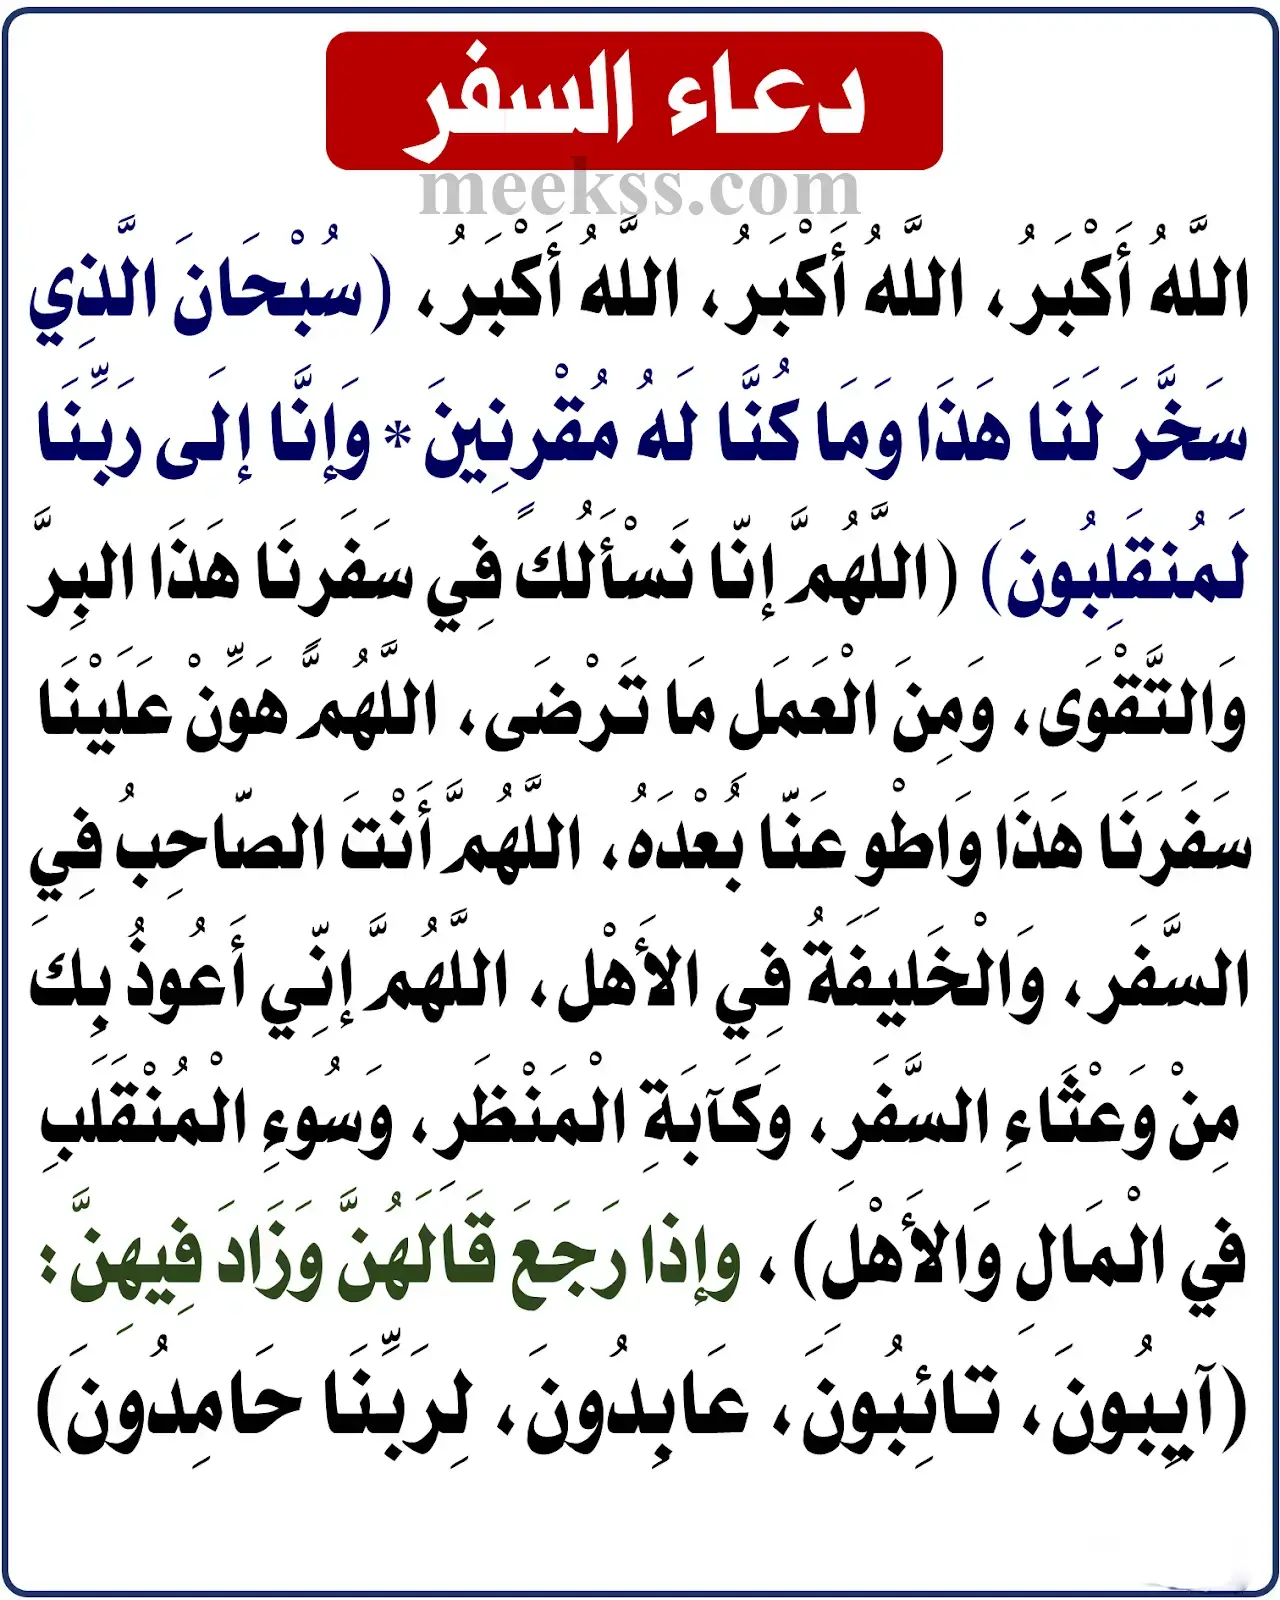 دعاء السفر
meekss.com
اللَّهُ أَكْبَرُ، اللَّهُ أَكْبَرُ، اللَّهُ أَكْبَرُ، (سُبْحَانَ الَّذِي
سَخَّرَ لَنَا هَذَا وَمَا كُنَّا لَهُ مُقْرِنِينَ * وَإِنَّا إِلَى رَبِّنَا
لَمُنقَلِبُونَ) (اللَّهُمَّ إِنّا نَسْأَلُكَ فِي سَفَرِنَا هَذَا البِرَّ
وَالتَّقْوَى، وَمِنَ الْعَمَلِ مَا تَرْضَى، اللَّهُمَّ هَوِّنْ عَلَيْنَا
سَفَرَنَا هَذَا وَاطْوِ عَنّا بُعْدَهُ، اللَّهُمَّ أَنْتَ الصّاحِبُ فِي
السَّفَرِ، وَالْخَلِيفَةُ فِي الأَهْلِ، اللَّهُمَّ إِنِّي أَعُوذُ بِكَ
مِنْ وَعْثَاءِ السَّفَرِ، وَكَآبَةِ الْمَنْظَرِ، وَسُوءِ الْمُنْقَلَبِ
فِي الْمَالِ وَالأَهْلِ)، وإذا رَجَعَ قَالَهُنَّ وَزَادَ فِيهِنَّ :
(آيِبُونَ، تَائِبُونَ، عَابِدُونَ، لِرَبِّنَا حَامِدُونَ)